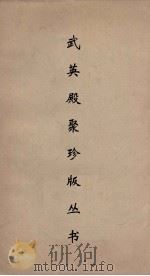 武英殿聚珍版丛书
mtoou.info
dushu